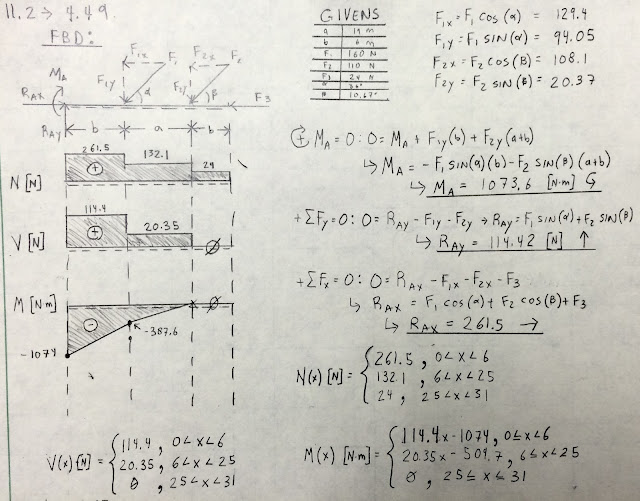 11.2 → 4.49
FBD:
F₁x F₁ F₂x F₂
MA F₁y α F₂y β
RAx F3
RAy b a b
GIVENS
a 19 m
b 6 m
F₁ 160 N
F₂ 110 N
F3 24 N
α 36°
β 10.67°
F₁x = F₁ cos(α) = 129.4
F₁y = F₁ sin(α) = 94.05
F₂x = F₂ cos(β) = 108.1
F₂y = F₂ sin(β) = 20.37
N [N] 261.5 + 132.1 24
V [N] 114.4 + 20.35 Ø
M [N·m] - Ø
-387.6
-1074
+ MA = 0: 0 = MA + F₁y(b) + F₂y(a+b)
↳ MA = -F₁ sin(α)(b) - F₂ sin(β)(a+b)
↳ MA = 1073.6 [N·m]
+ΣFy = 0: 0 = RAy - F₁y - F₂y → RAy = F₁ sin(α) + F₂ sin(β)
↳ RAy = 114.42 [N] ↑
+ΣFx = 0: 0 = RAx - F₁x - F₂x - F3
↳ RAx = F₁ cos(α) + F₂ cos(β) + F3
↳ RAx = 261.5 →
N(x) [N] = { 261.5, 0<x<6
132.1, 6<x<25
24, 25<x<31
V(x) [N] = { 114.4, 0<x<6
20.35, 6<x<25
Ø, 25<x<31
M(x) [N·m] = { 114.4x-1074, 0≤x<6
20.35x-509.7, 6≤x<25
Ø, 25≤x≤31